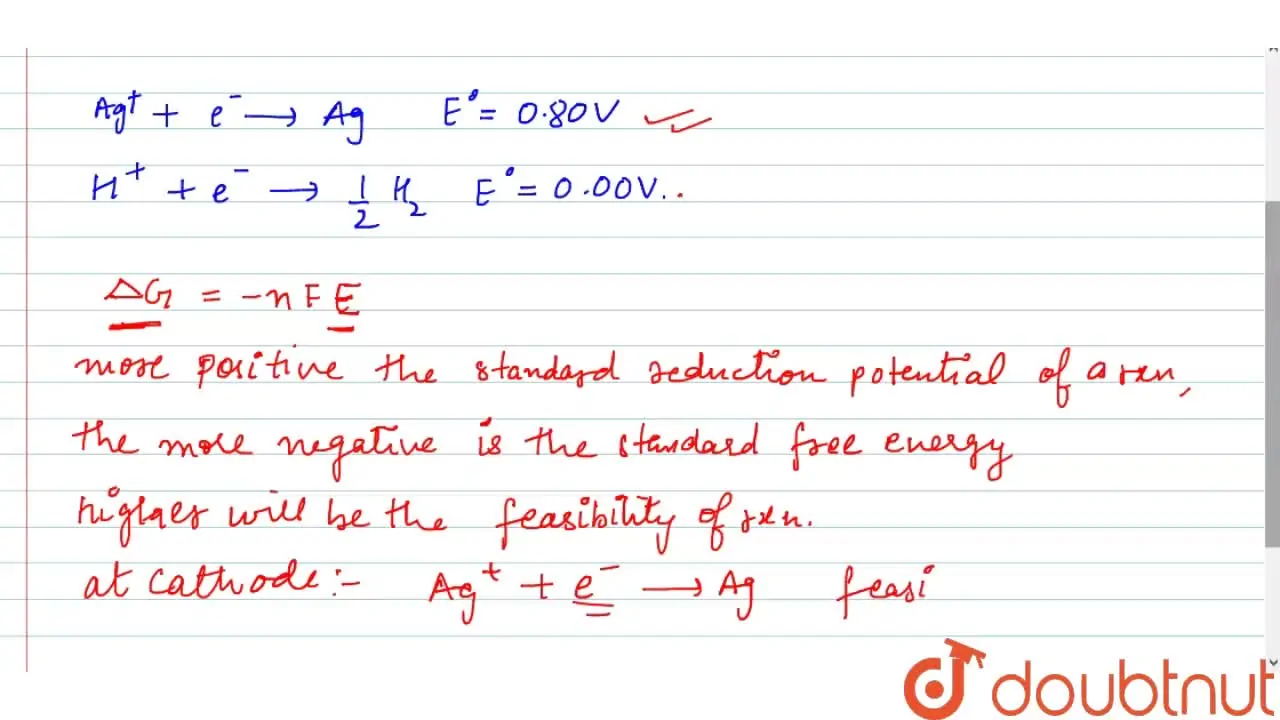 Ag⁺ + e⁻ → Ag E° = 0.80V
H⁺ + e⁻ → 1/2 H₂ E° = 0.00V.
ΔG = -nFE
more positive the standard reduction potential of a rxn,
the more negative is the standard free energy
higher will be the feasibility of rxn.
at cathode:- Ag⁺ + e⁻ → Ag feasi
doubtnut